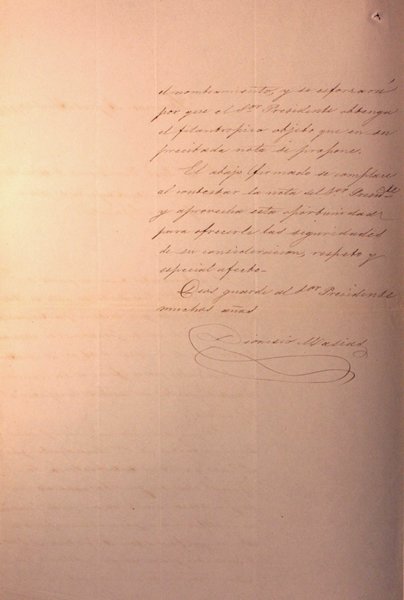 el nombramiento, y se esforzará
por que el Sor Presidente obtenga
el filantropico objeto que en su
precitada nota se propone.
El abajo firmado se complace
al contestar la nota del Sor Presidte
y aprovecha esta oportunidad
para ofrecerle las seguridades
de su consideracion, respeto y
especial afecto.
Dios guarde al Sor Presidente
muchos años
Dionisio Masias